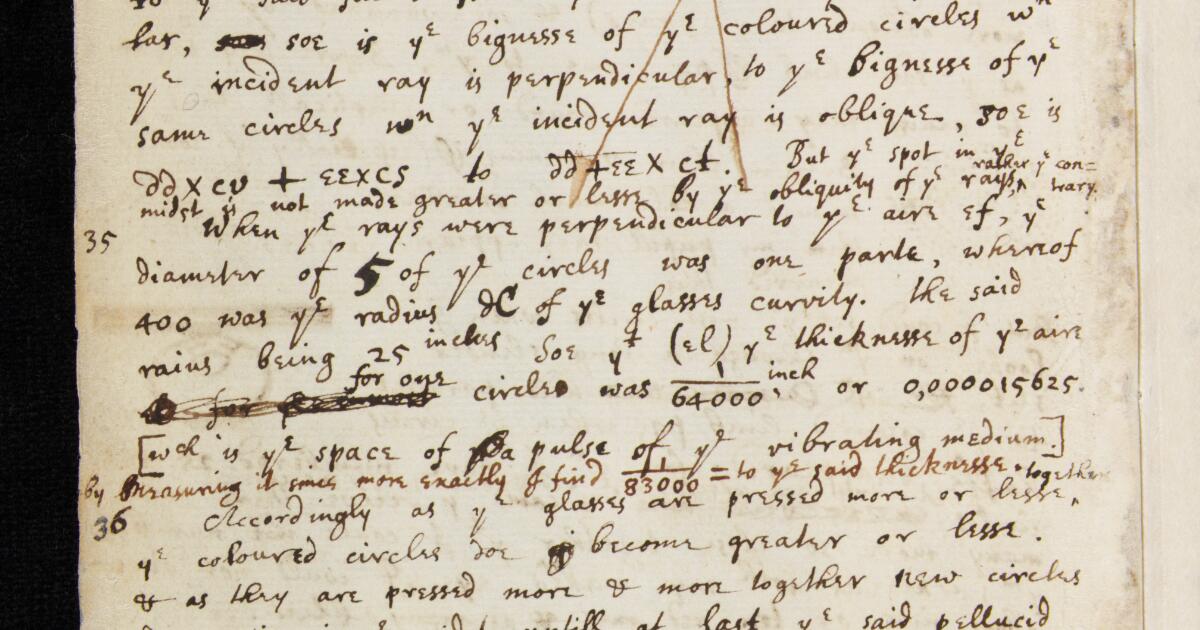 lar, soe is yᵉ bignesse of yᵉ coloured circles wⁿ
yᵉ incident ray is perpendicular, to yᵉ bignesse of yᵉ
same circles wⁿ yᵉ incident ray is oblique, soe is
dd × cv + εε × cs to dd + εε × ct. But yᵉ spot in yᵉ
midst is not made greater or lesse by yᵉ obliquity of yᵉ rays, rather yᵉ con=trary.
35 When yᵉ rays were perpendicular to yᵉ aire ef, yᵉ
diameter of 5 of yᵉ circles was one parte, whereof
400 was yᵉ radius dC of yᵉ glasses curvity. the said
raius being 25 inches Soe yᵗ (el) yᵉ thickness of yᵉ aire
for one circle was 1/64000 inch, or 0,000015625.
[wᶜʰ is yᵉ space of a pulse of yᵉ vibrating medium.]
by measuring it since more exactly I find 1/83000 = to yᵉ said thicknesse.
36 Accordingly as yᵉ glasses are pressed more or lesse, together
yᵉ coloured circles doe become greater or lesse.
& as they are pressed more & more together new circles
untill at last yᵉ said pellucid